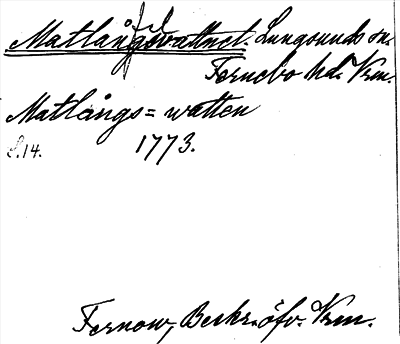 Matlångsvattnet. Lungsunds sn.
Fernebo hd. Vrm.
Matlångs=watten
S.14. 1773.
Fernow, Beskr. öfv. Vrm.